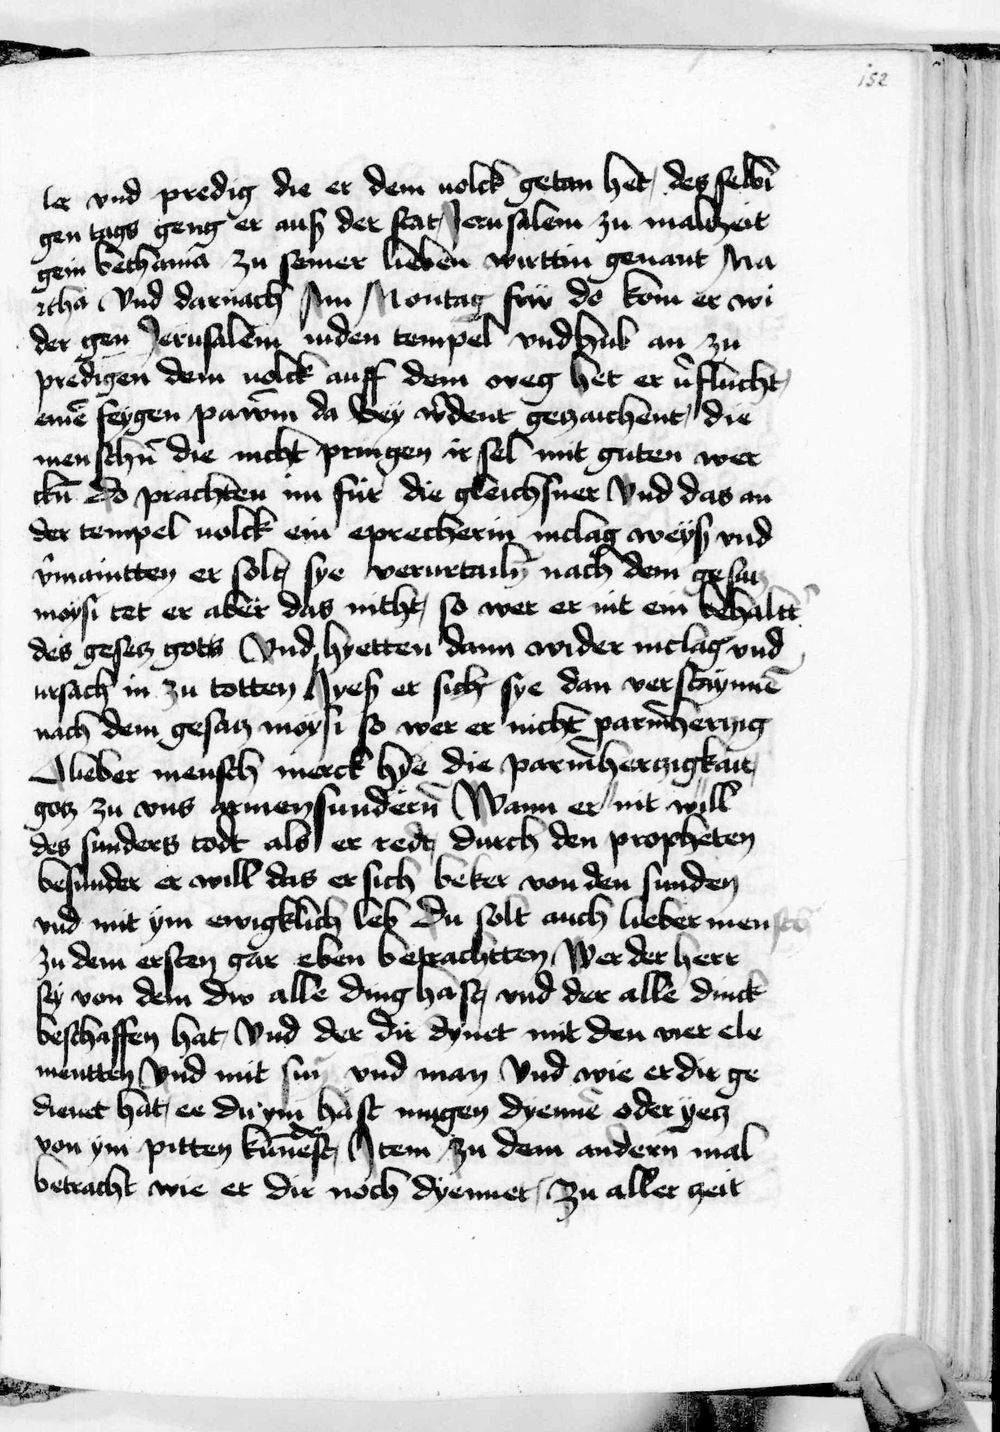 152
ler vnd predig die er dem uolck getan het / des selbi
gen tags geng er auß der stat / Jerusalem zu malzeit
gein bethania zu seiner lieben wirttin genant Ma
rtha Vnd darnach Am Montag frw do kom er wi
der gen Jerusalem inden tempel vnd hub an zu
predigen dem uolck auff dem weg het er v̉flucht /
eine͂ feygen pawm da bey w̉dent gezaichent / die
menschn̄ die nicht pringen ir sel mit guten wer
ckn̄ Do prachten im für die gleichsner Vnd das an
der tempel uolck ein eprecherin inclag weyß vnd
v̉maintten er solt / sye verurtailn̄ nach dem gesatz
moysi tet er aber das nicht / so wer er nit ein behaltt̉
des gesetz gots Vnd hyetten dann wider inclag vnd
ursach in zu totten Hyeß er sich sye dan verstaynne͂
nach dem gesatz moysi so wer er nicht parm̉hertzig
O lieber mensch merck hye die parm̉hertzigkait /
gotz zu vns armen sundern̄ Wann er nit will
des sunders todt als er redt / durch den propheten
besunder er will das er sich beker von den sunden
vnd mit ym ewigklich leb Du solt auch lieber mensch
zu dem ersten gar eben betrachtten / Wer der herr
sey von dem dw alle ding hast / vnd der alle dinck
beschaffen hat / Vnd der dir dynet mit den vier ele
mentten Vnd mit sun vnd man Vnd wie er dir ge
dienet hat / ee du ym hast mugen dyenne͂ oder yetz
von ym pitten kundest / Item zu dem andern mal
betracht wie er dir noch dyennet / Zu aller zeit